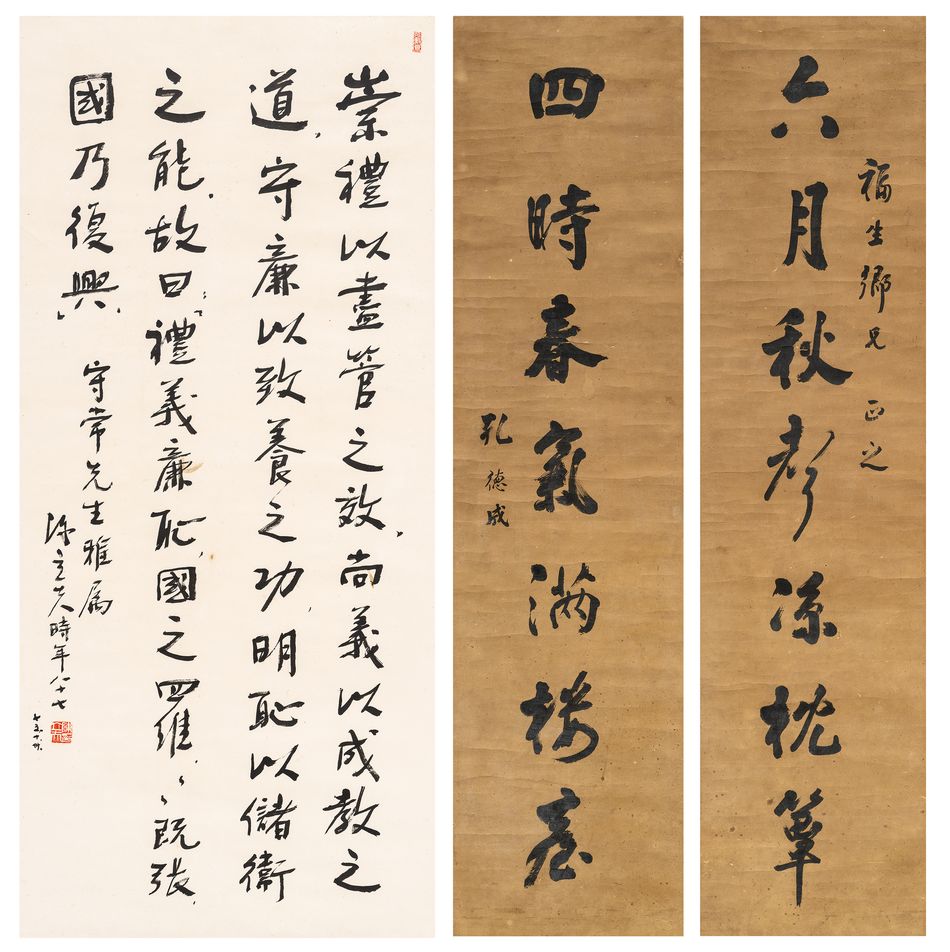 福生鄉兄 正之
六月秋聲涼枕簟
四時春氣滿樓臺
孔德成
崇禮以盡管之效，尚義以成教之
道，守廉以致養之功，明恥以儲衛
之能，故曰：「禮義廉恥，國之四維，〻既張，
國乃復興」。
守常先生雅屬
陳立夫時年八十七